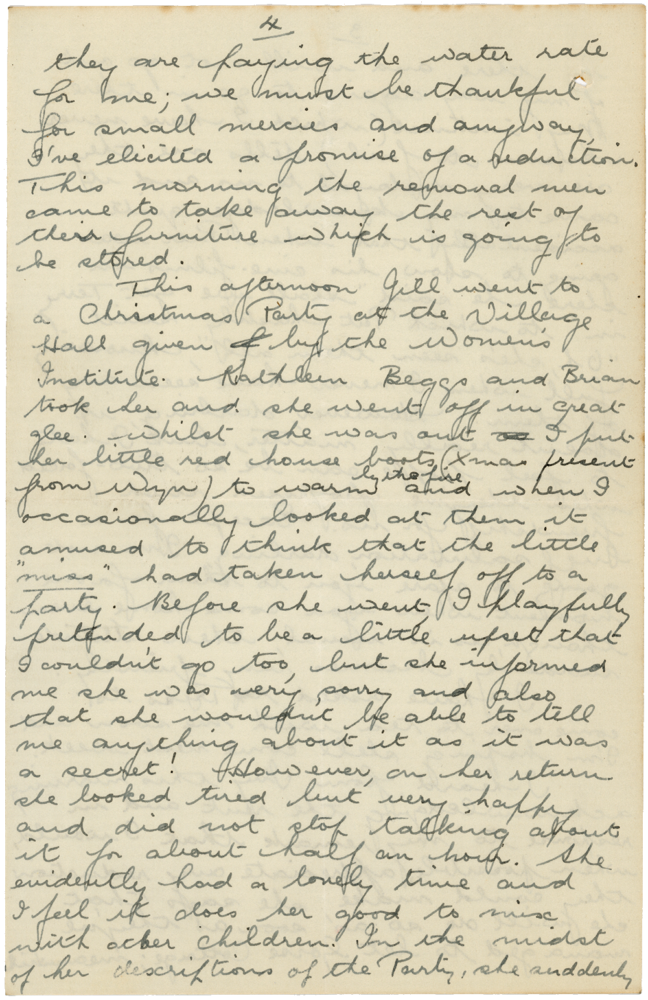 4
they are paying the water rate
for me; we must be thankful
for small mercies and anyway,
I've elicited a promise of a reduction.
This morning the removal men
came to take away the rest of
their furniture which is going to
be stored.
This afternoon Gill went to
a Christmas Party at the Village
Hall given by the Women's
Institute. Kathleen Beggs and Brian
took her and she went off in great
glee. Whilst she was out I put
her little red house boots (Xmas present
from Wyn) to warm by the fire and when I
occasionally looked at them it
amused to think that the little
"miss" had taken herself off to a
party. Before she went, I playfully
pretended to be a little upset that
I couldn't go too, but she informed
me she was very, sorry and also
that she wouldn't be able to tell
me anything about it as it was
a secret! However, on her return
she looked tired but very happy
and did not stop talking about
it for about half an hour. She
evidently had a lovely time and
I feel it does her good to mix
with other children. In the midst
of her descriptions of the Party, she suddenly